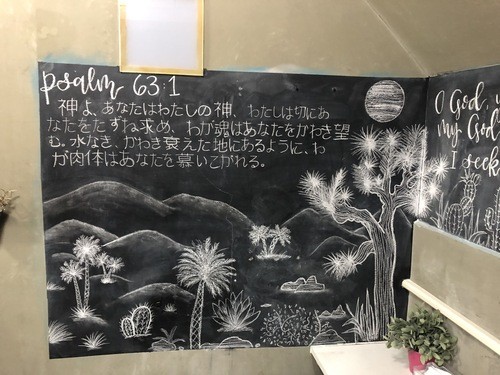 psalm 63:1
神よ、あなたはわたしの神、わたしは切にあ
なたをたずね求め、わが魂はあなたをかわき望
む。水なき、かわき衰えた地にあるように、わ
が肉体はあなたを慕いこがれる。
O God,
my God
I seek